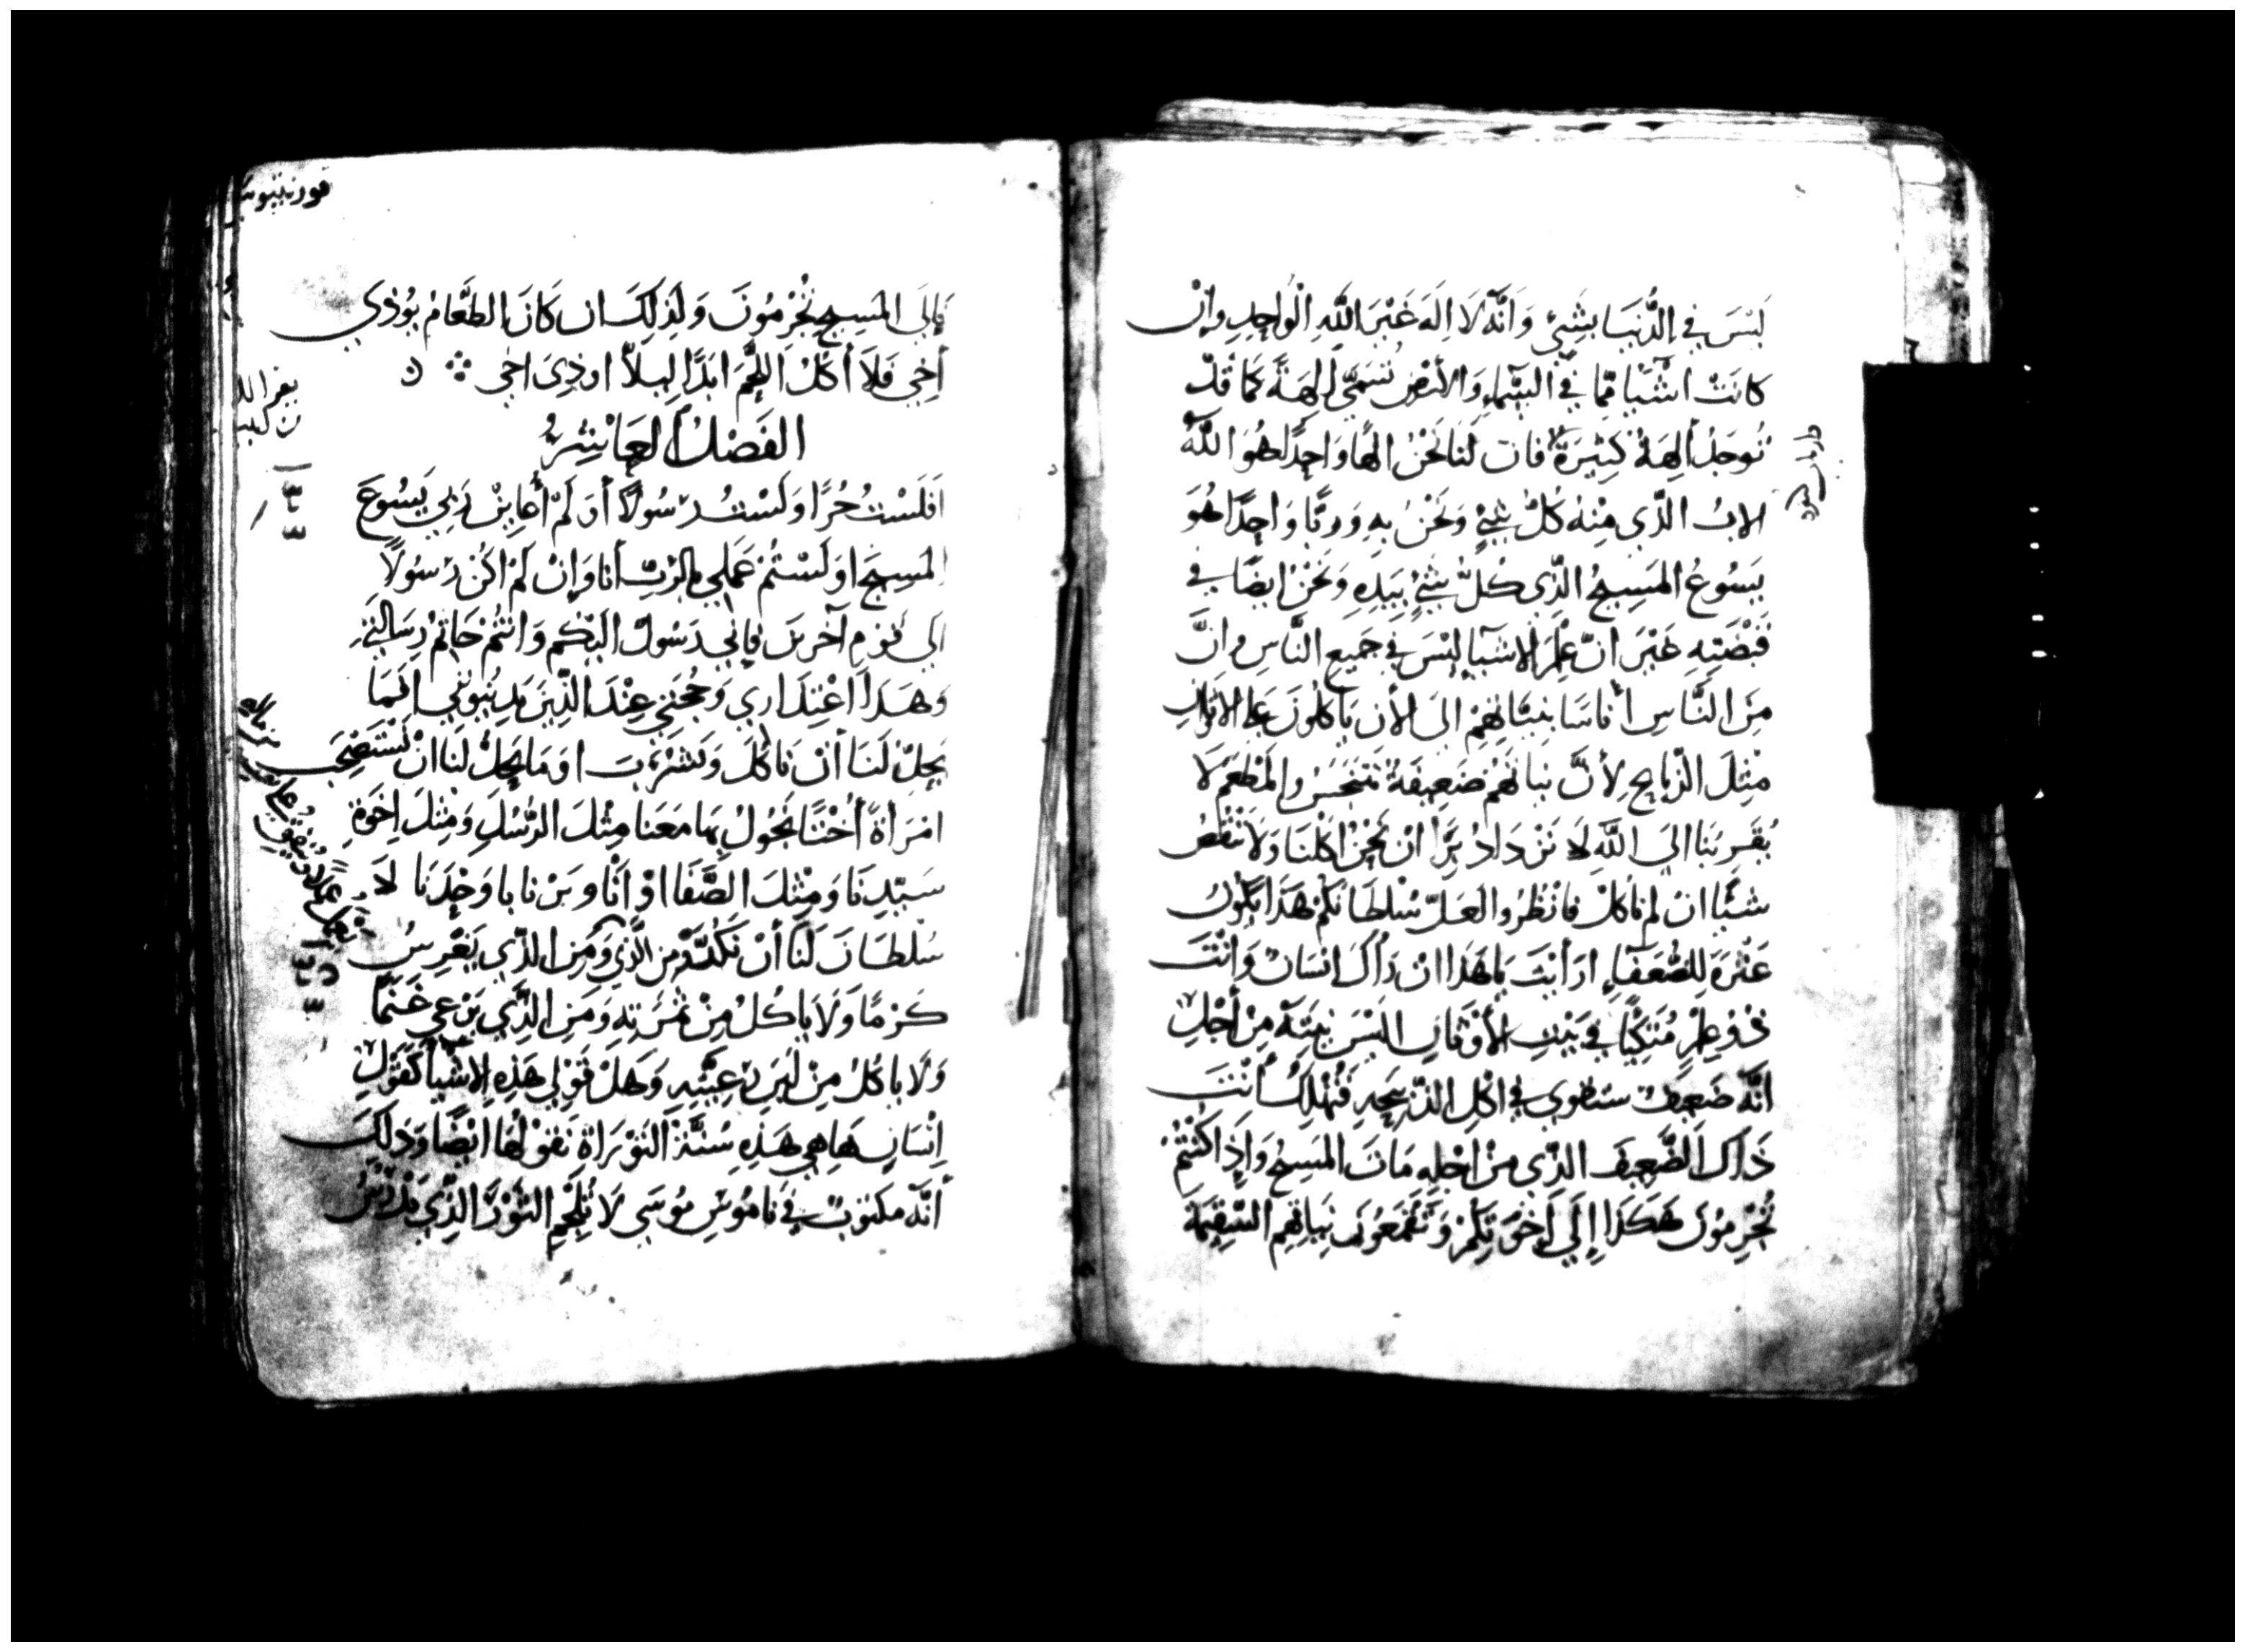 لَيْسَ فِي الدُّنْيَا بِشَيْءٍ وَانَّه لَا اِلَهَ غَيْرَ اللَّهِ الْوَاحِدِ وإنْ
كانَتْ اشْيَا مِمَّا فِي السَّمَاءِ وَالأرْضِ تُسَمَّي آلِهَةً كَمَا قَدْ
تُوجَدُ آلِهَةٌ كَثِيرَةٌ فان لَنَا نَحْنُ الهًا وَاحِدًا هُوَ اللَّهُ
الابُ الذَّي مِنْهُ كُلُّ شَيْءٍ وَنَحْنُ بِهِ وَرَبًّا وَاحِدًا هُوَ
يَسُوعُ المَسِيحُ الذَّي كُلُّ شَيْءٍ بِيَدِهِ وَنَحْنُ ايضًا في
قَبْضَتِهِ غَيْرَ انَّ عِلْمَ الاشيَآ ليْسَ فِي جَمِيعِ النَّاسِ وانَّ
مِنَ النَّاسِ أنَاسًا بِنِيَّاتِهِمْ الَى الأن يَأكُلُونَ عَلى الاوثَانِ
مِثْلَ الذَّبَايِحِ لِأنَّ نِيَاتَهُمْ ضَعِيفَةٌ تَتَنَجَّسُ والمَطْعَمُ لَا
يُقَرِبُنَا الَي اللَّهِ لَا نَزْدَادُ بِرًّا انْ نَحْنُ اكَلْنَا وَلَا نَنْقُصُ
شَيئًا انْ لم نَاكُلْ فانْظُرُوا لَعَلَّ سُلْطَانَكُمْ هَذَا يَكُونُ
عَثْرَةً لِلضُّعَفَاءِ ارَأيْتَ يَا هَذَا انْ رَآكَ انْسَانٌ وَانْتَ
ذُو عِلْمٍ مُتَكِيًا فِي بَيْتِ الأوْثَانِ اليْسَ نِيَّتَهُ مِنْ أجْلِ
انَّهُ ضَعِيفٌ سَتَقْوي فِي اكْلِ الذَّبِيحَةِ فَتُهْلِكُ أنْتَ
ذَاكَ الضَّعِيفَ الذَّي مِنْ اجْلِهِ مَاتَ المَسِيحُ وَإذَا كُنْتُمْ
تُجْرِمُونَ هَكَذَا إلَي اخْوَتِكُمْ وَتَقْمَعُونَ نِيَاتَهُم السَّقِيمَةَ
فَإلَى المَسِيحِ تُجْرِمُونَ وَلِذَلِكَ ان كَانَ الطَّعَامُ يُوذِي
أخِي فَلَا أكُلُ اللَّحْمَ ابَدًا لِيلَا اوذِىَ اخي
الفَصْلُ العَاشِرُ
افَلَسْتُ حُرًا وَلَسْتُ رَسُولًا أوَ لَمْ أُعَايِنْ رَبي يَسُوعَ
المَسِيحَ اوَ لَسْتُمْ عَمَلِي بالرَبِّ أنَا وَإنْ لَمْ اكُنْ رَسُولًا
الَى قوْمٍ آخَرِينَ فإنِي رَسُولٌ اليْكُم وَانْتُمْ خَاتَمُ رِسَالَتِي
وَهَذَا اعْتِذَاري وَحُجَّتِي عِنْدَ الذِّينَ يَدِينُونَنِي افَمَا
يَحِلُّ لَنَا أنْ نَاكُلَ وَنَشْرَبَ اوَ مَا يَحِلُّ لَنَا انْ نَسْتَصْحِبَ
امْرَأةً أُخْتًا تَجُولُ بِهَا مَعَنَا مِثْلَ الرُّسُلِ وَمِثْلَ اِخْوَةِ
سَيّدِنَا وَمِثْلَ الصَّفَا اوْ انَا وَبَرْنَابَا وَحْدَنَا لَا
سُلْطَانَ لَنَا أنْ نَكُدَّ وَمَن الذَّي يَغْرِسُ
كَرْمًا وَلَا يَاكُلُ مِنْ ثَمْرَتِهِ وَمَنِ الذَّي يَرْعِي غَنَمًا
وَلَا يَاكُلُ مِنْ لَبَنِ رَعِيَّتِهِ وَهَلْ قَوْلِي هَذِهِ الاشْيَآ كَقَوْلِ
اِنْسَانٍ هَا هِي هَذِهِ سُنَّةُ التَوْرَاةِ تَقُولُهَا ايْضًا وَذَلِكَ
أنَّهُ مكتوبٌ في نَامُوسِ مُوسَي لَا تُلْجِمِ الثَوْرَ الذِّي يَدْرُسُ